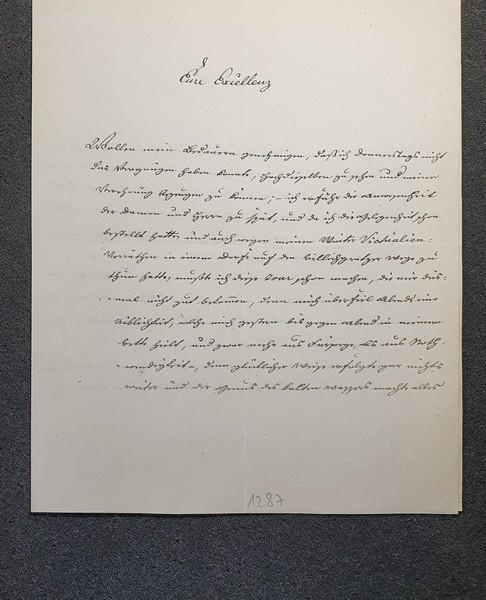 Eure Excellenz
Wollen mein Bedauern genehmigen, daß ich Donnerstags nicht
das Vergnügen haben konnte, Hochdieselben zu sehen und meine
Verehrung bezeugen zu können; – ich erfuhr die Anwesenheit
der Damen und Herrn zu spät, und da ich die Gelegenheit schon
bestellt hatte und auch wegen meinen Winter Victualien-
Vorräthen in einem Dorfe auf den Willichgratzer Wege zu
thun hatte, mußte ich diese Tour schon machen, die mir dies-
mal nicht gut bekommen, denn mich überfiel Abends eine
Üblichkeit, welche mich gestern bis gegen Abend in meinem
Bette hielt, und zwar mehr aus Fürsorge, als aus Noth-
wendigkeit –, denn glücklicher Weise erfolgte gar nichts
weiter und der Genus des kalten Wassers machte alles
1287